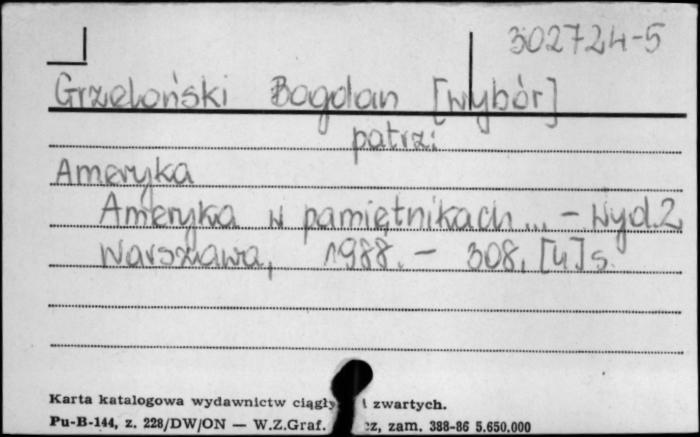 302724-5
Grzeloński Bogdan [wybór]
patrz:
Ameryka
Ameryka w pamiętnikach... - Wyd. 2
Warszawa, 1988. - 308, [4] s.
Karta katalogowa wydawnictw ciągły i zwartych.
Pu-B-144, z. 228/DW/ON — W.Z.Graf. cz, zam. 388-86 5.650.000